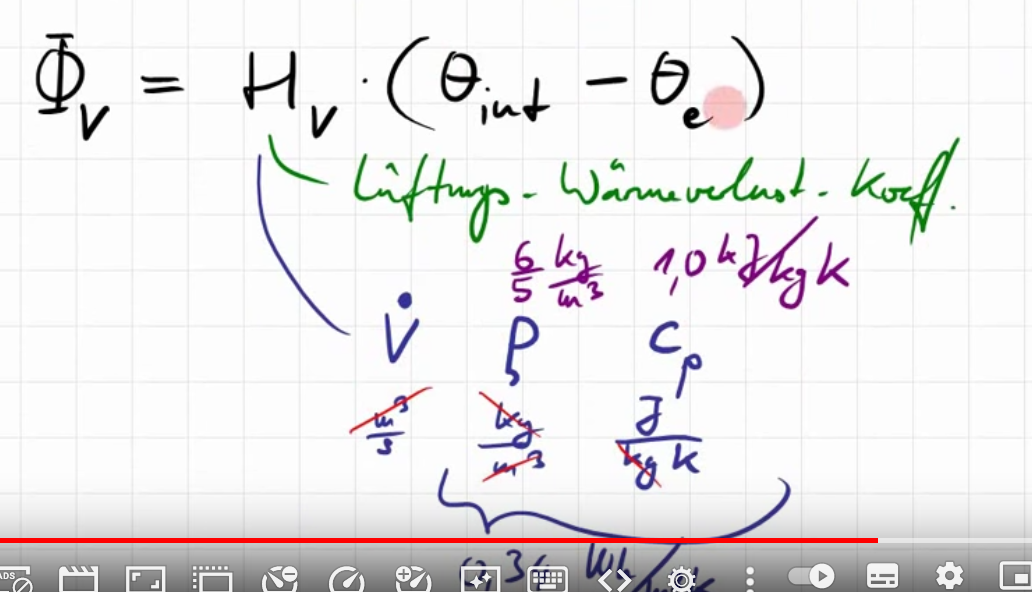 Φ_V = H_V · (θ_int − θ_e)
Lüftungs-Wärmeverlust-Koeff.
6/5 kg/m³ 1,0 kJ/kg K
V̇ ρ c_p
m³/s kg/m³ J/kg K
0,34 Wh/m³K
ADS